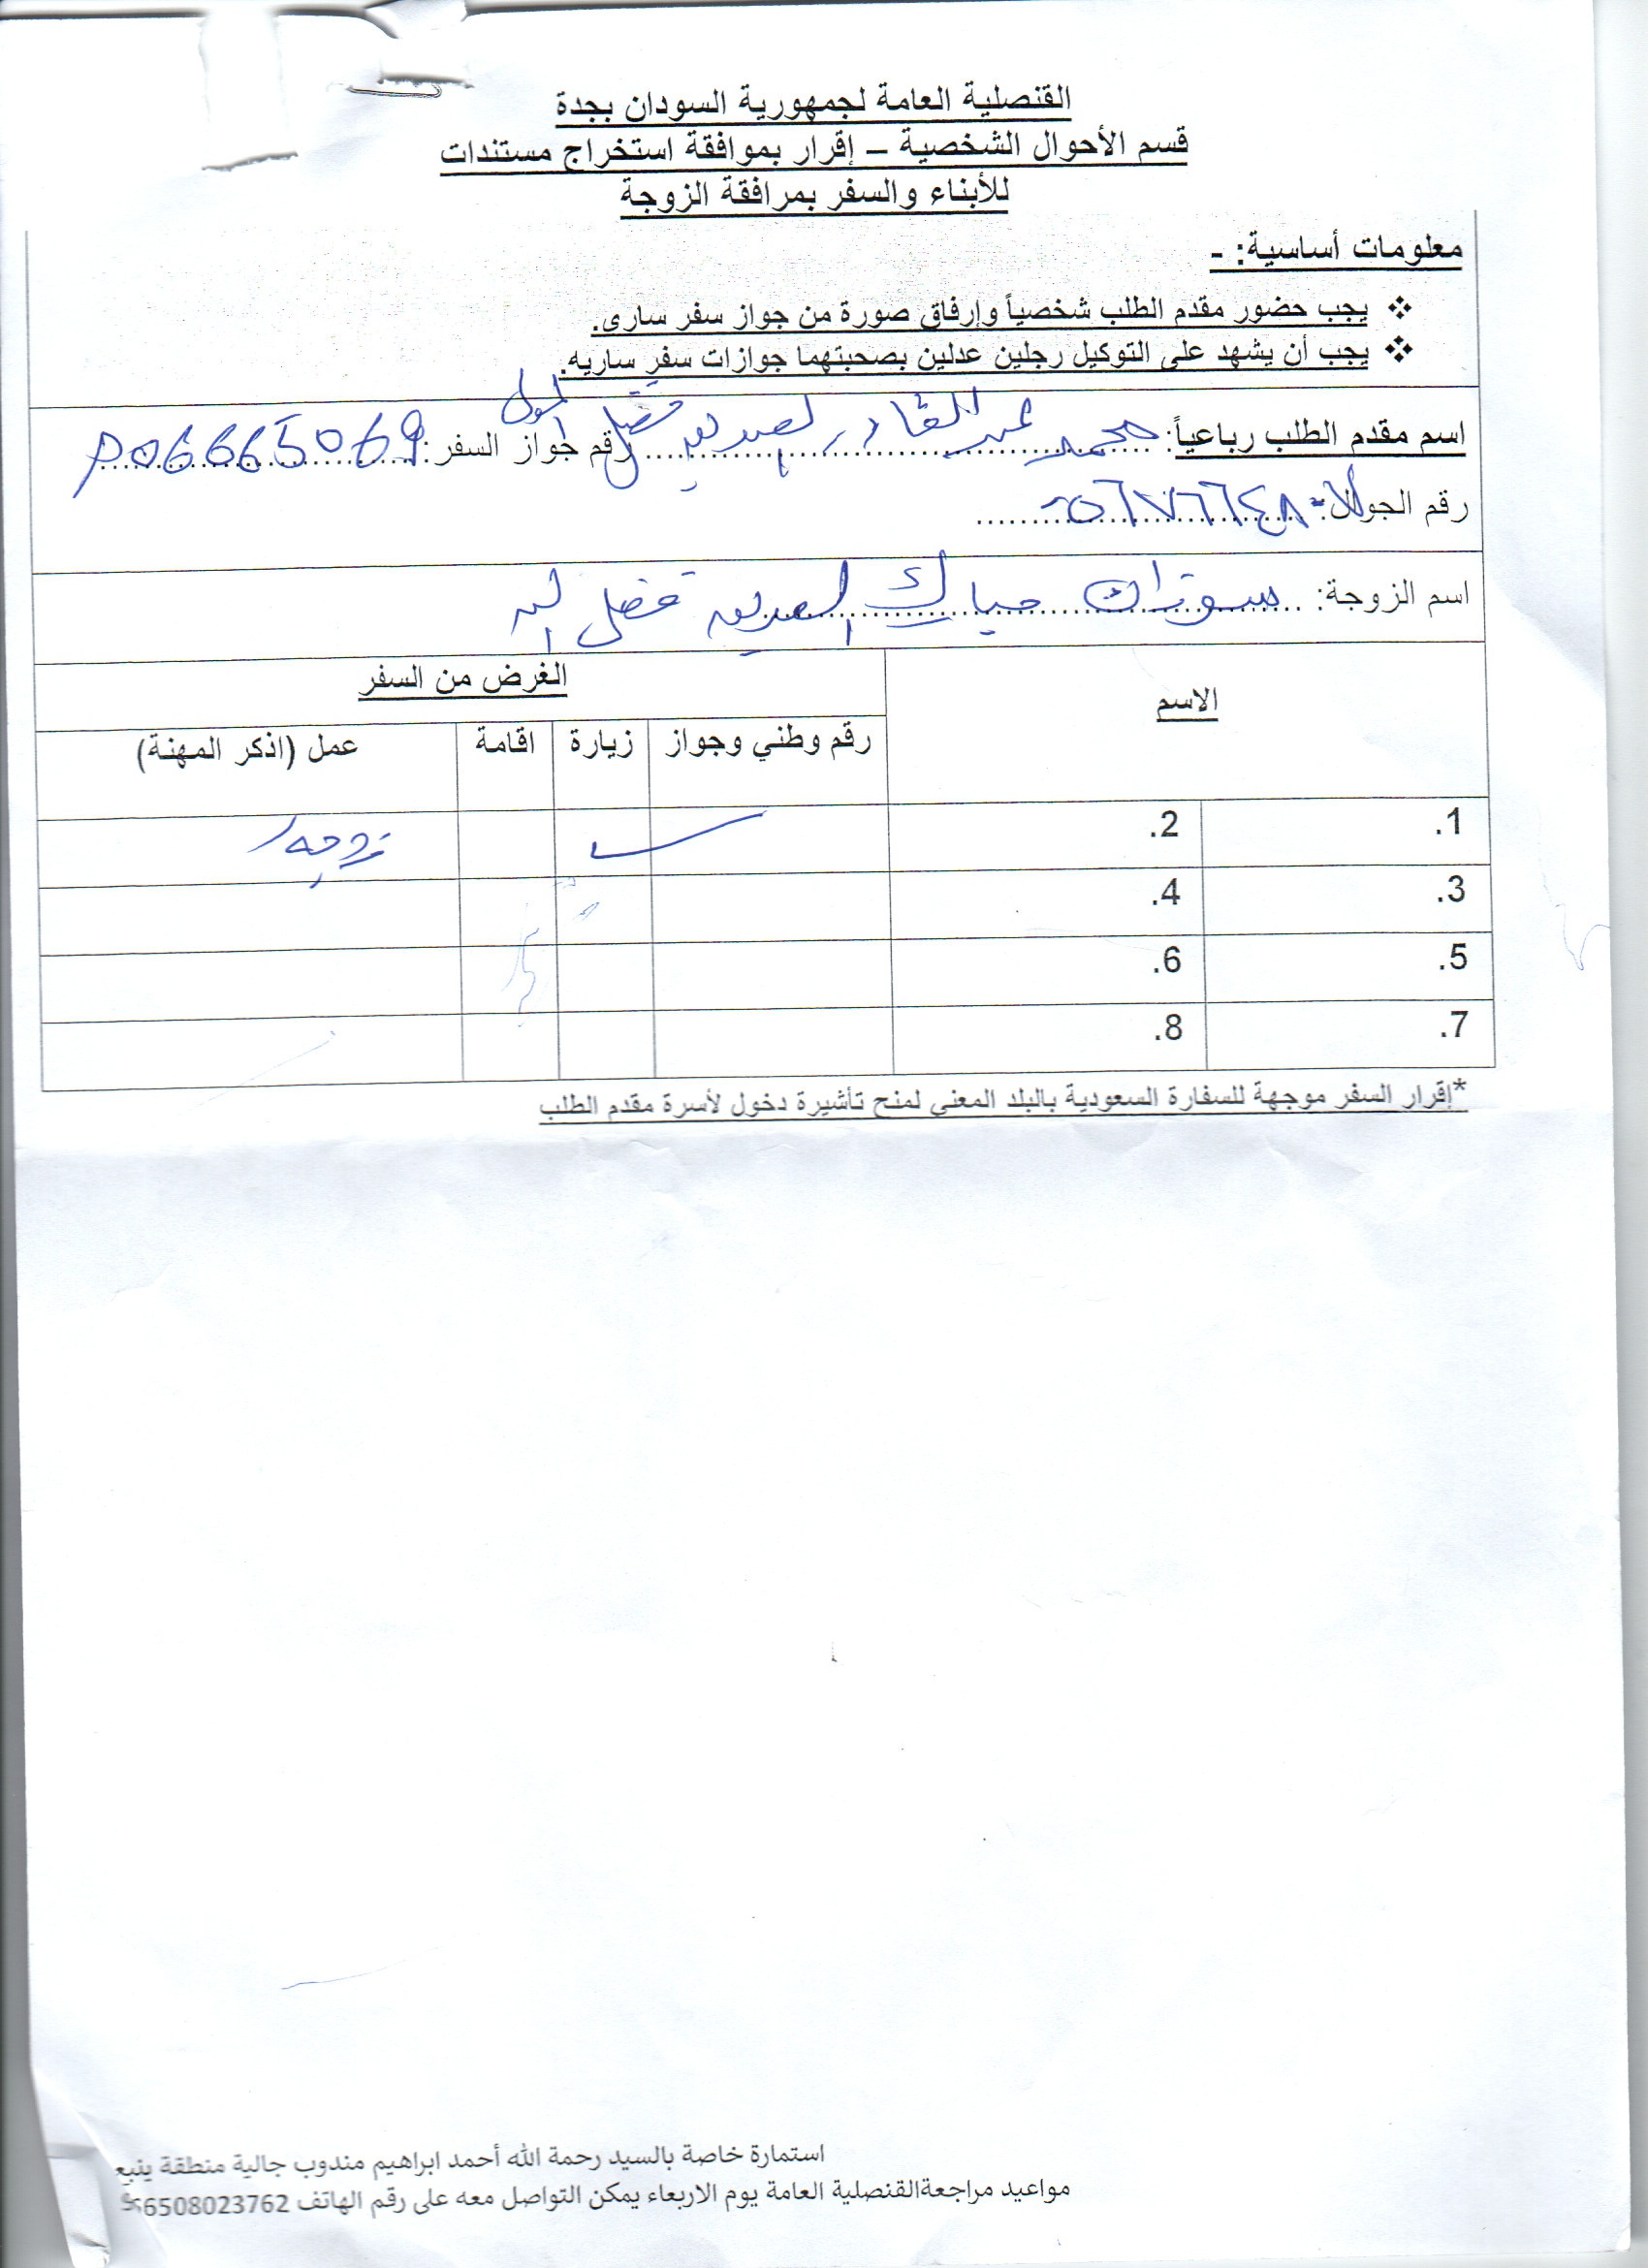 القنصلية العامة لجمهورية السودان بجدة
قسم الأحوال الشخصية – إقرار بموافقة استخراج مستندات
للأبناء والسفر بمرافقة الزوجة
معلومات أساسية: -
❖ يجب حضور مقدم الطلب شخصياً وإرفاق صورة من جواز سفر سارى.
❖ يجب أن يشهد على التوكيل رجلين عدلين بصحبتهما جوازات سفر ساريه.
اسم مقدم الطلب رباعياً: محمد عبدالقادر الصديق فضل رقم جواز السفر: P06665069
رقم الجوال:
اسم الزوجة: سوزان مبارك الصديق فضل
الاسم الغرض من السفر
رقم وطني وجواز زيارة اقامة عمل (اذكر المهنة)
1. 2. زوجه
3. 4.
5. 6.
7. 8.
*إقرار السفر موجهة للسفارة السعودية بالبلد المعني لمنح تأشيرة دخول لأسرة مقدم الطلب
استمارة خاصة بالسيد رحمة الله أحمد ابراهيم مندوب جالية منطقة ينبع
مواعيد مراجعةالقنصلية العامة يوم الاربعاء يمكن التواصل معه على رقم الهاتف 96508023762